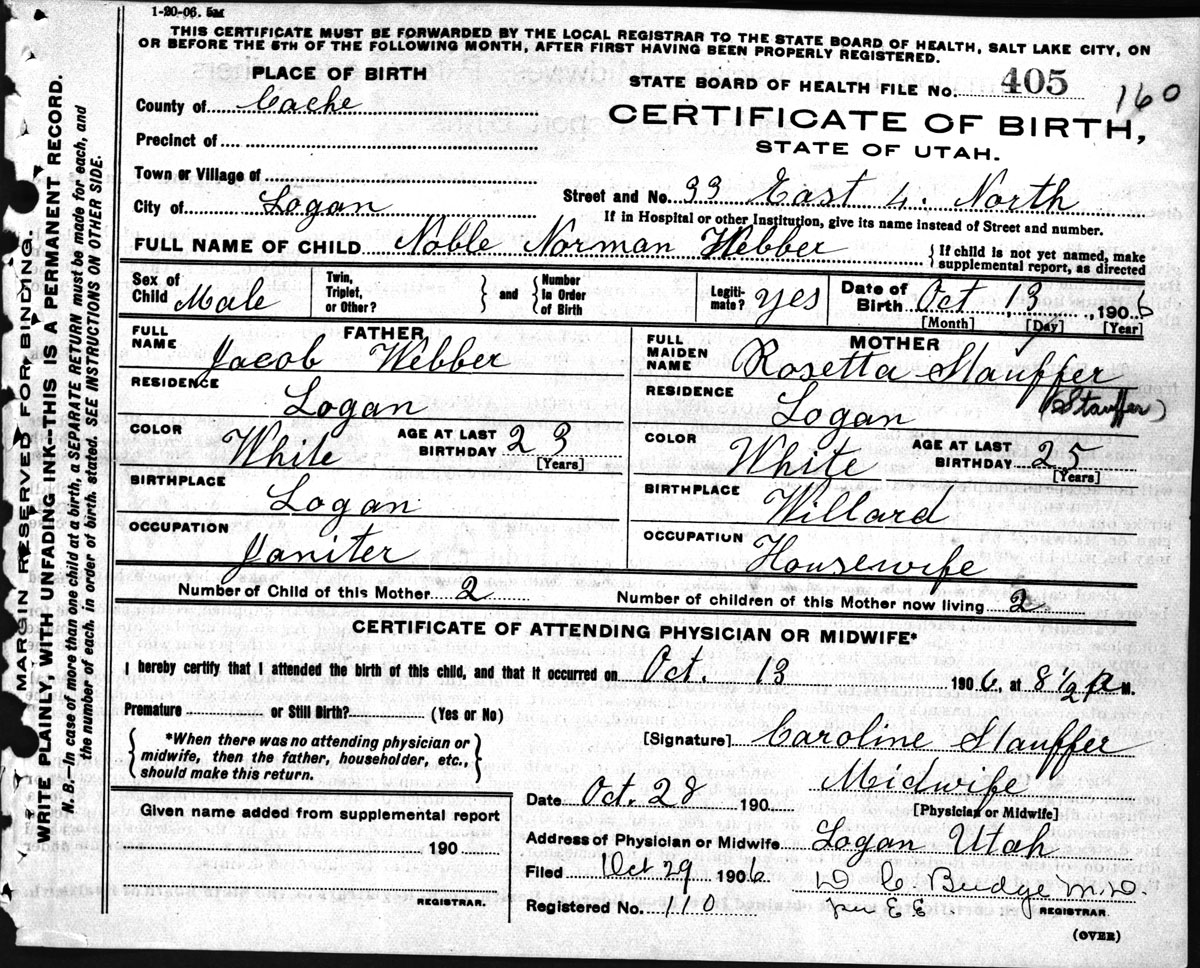 1-20-06. 5m
THIS CERTIFICATE MUST BE FORWARDED BY THE LOCAL REGISTRAR TO THE STATE BOARD OF HEALTH, SALT LAKE CITY, ON
OR BEFORE THE 5TH OF THE FOLLOWING MONTH, AFTER FIRST HAVING BEEN PROPERLY REGISTERED.
PLACE OF BIRTH
STATE BOARD OF HEALTH FILE No. 405
160
County of Cache
CERTIFICATE OF BIRTH,
STATE OF UTAH.
Precinct of
Town or Village of
City of Logan
Street and No. 33 East 4. North
If in Hospital or other Institution, give its name instead of Street and number.
FULL NAME OF CHILD Noble Norman Webber
{ If child is not yet named, make
supplemental report, as directed
Sex of Child Male
Twin, Triplet, or Other? } and { Number In Order of Birth
Legiti- mate? yes
Date of Birth Oct 13, 1906
[Month] [Day] [Year]
FATHER
FULL NAME Jacob Webber
RESIDENCE Logan
COLOR White
AGE AT LAST BIRTHDAY 23 [Years]
BIRTHPLACE Logan
OCCUPATION Janiter
MOTHER
FULL MAIDEN NAME Rosetta Stauffer
(Stauffer)
RESIDENCE Logan
COLOR White
AGE AT LAST BIRTHDAY 25 [Years]
BIRTHPLACE Willard
OCCUPATION Housewife
Number of Child of this Mother 2
Number of children of this Mother now living 2
CERTIFICATE OF ATTENDING PHYSICIAN OR MIDWIFE*
I hereby certify that I attended the birth of this child, and that it occurred on Oct. 13 1906, at 8 1/2 a M.
Premature or Still Birth? (Yes or No)
{ *When there was no attending physician or
midwife, then the father, householder, etc.,
should make this return. }
[Signature] Caroline Stauffer
Midwife
[Physician or Midwife]
Date Oct. 28 190
Address of Physician or Midwife Logan Utah
Given name added from supplemental report
190
REGISTRAR.
Filed Oct 29 1906
D C Budge M.D.
Registered No. 110
per E E
REGISTRAR.
(OVER)
MARGIN RESERVED FOR BINDING.
WRITE PLAINLY, WITH UNFADING INK--THIS IS A PERMANENT RECORD.
N. B.--In case of more than one child at a birth, a SEPARATE RETURN must be made for each, and
the number of each, in order of birth, stated. SEE INSTRUCTIONS ON OTHER SIDE.